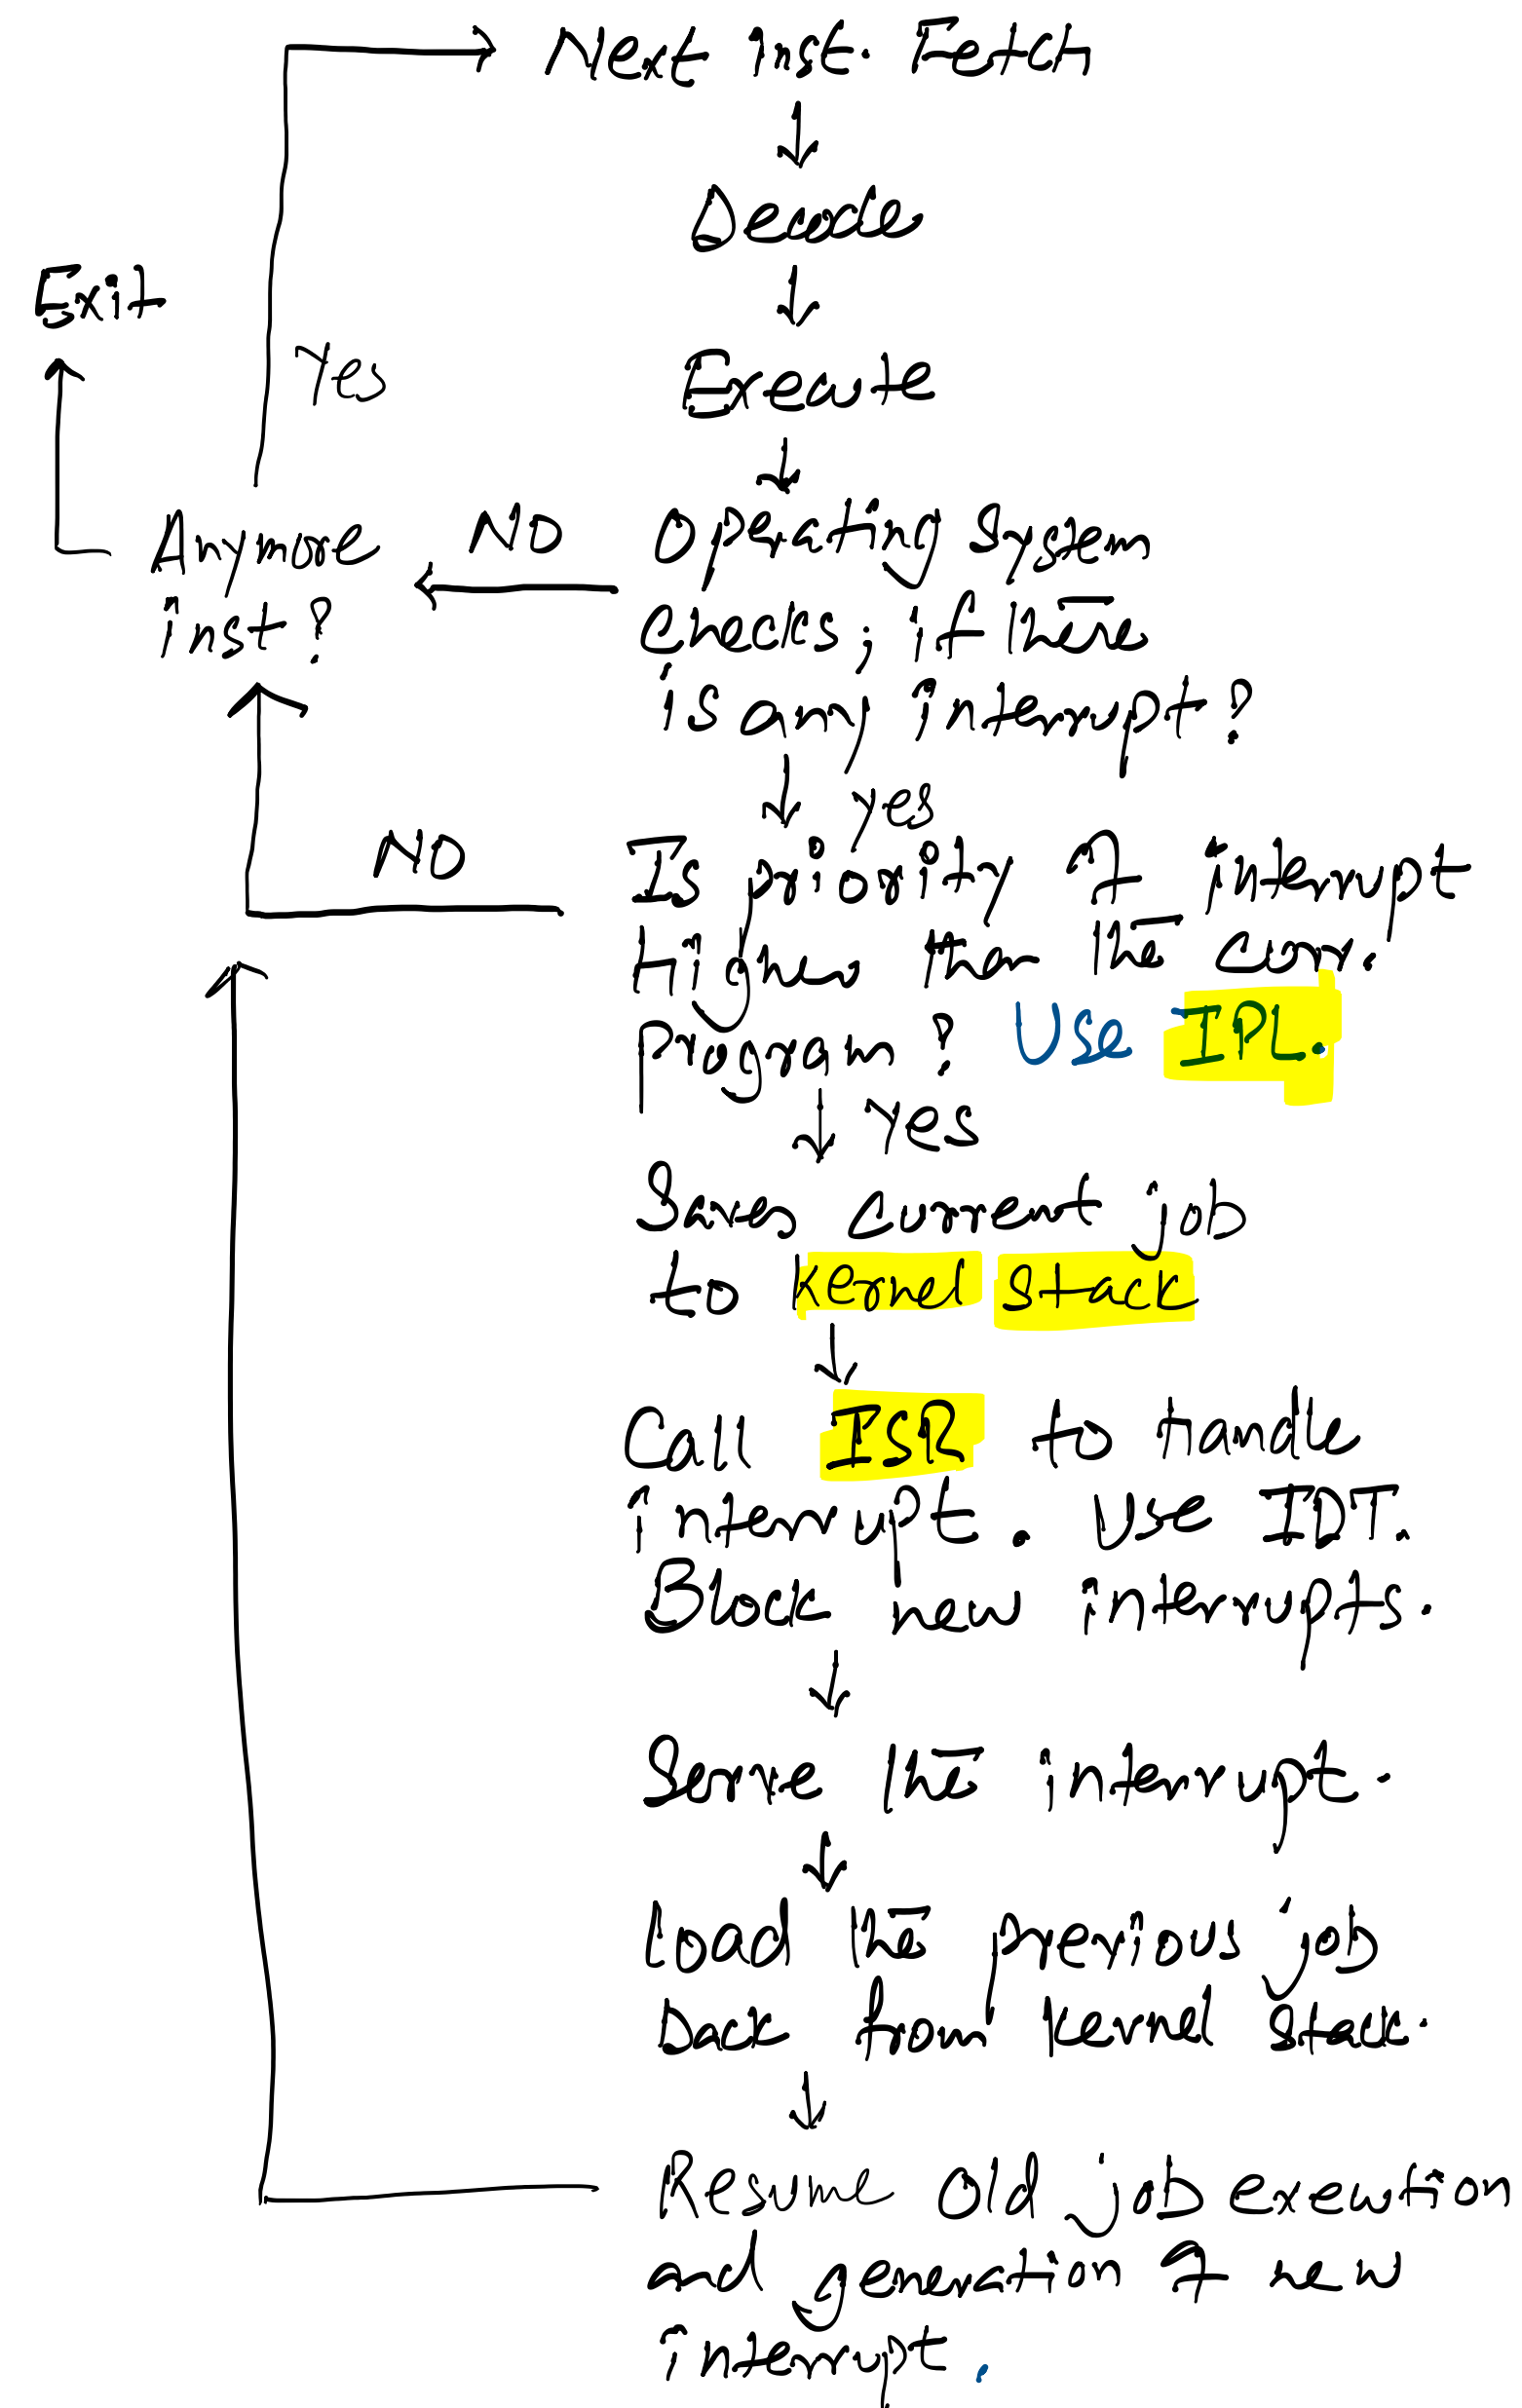 Next inst. Fetch
Decode
Exit
Yes
Execute
Anymore
inst?
NO
Operating System
checks, if there
is any interrupt?
yes
NO
Is priority of interrupt
Higher than the curr.
program? Use IPL.
Yes
Saves current job
to kernel stack
Call ISR to handle
interrupt. Use IDT.
Block new interrupts.
Serve the interrupt.
Load the previous job
back from kernel stack.
Resume old job execution
and generation of new
interrupt.